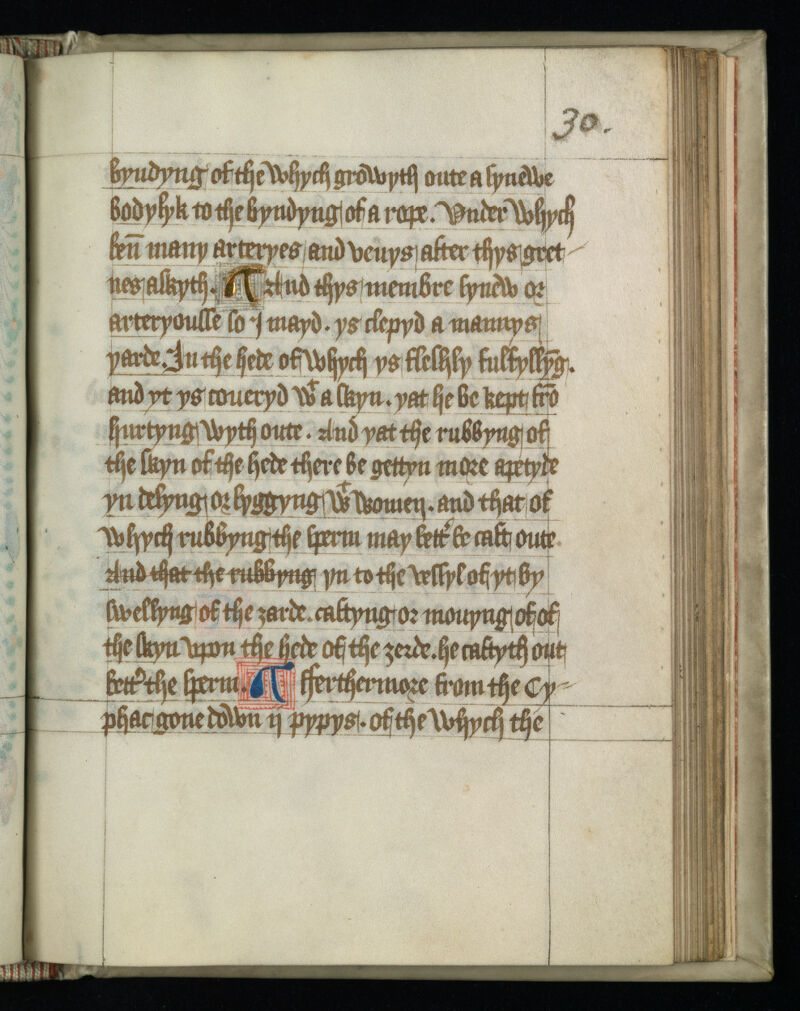 30.
byndyng of the whych growyth oute a synewe
body lyk to the byndyng of a rope. Vnder whych
ben̄ many arteryes and veuys after thys gret
nes askyth. ¶ And thys membre synew or
arteryousse so J mayd. ys clepyd a mannys
yarde. Jn the hede of whych ys fleshly fulfyllyg̅.
and yt ys coueryd wt a skyn. yat he be kept frō
hurtyng wyth oute. And yat the rubbyng of
the skyn of the hede there be gettyn more apetyde
yn delyng or lyggyng wt women. and that of
whych rubbyng the sperm may bett' be cast oute.
And that the rubbyng yn to the vessyl of yt by
swellyng of the ȝarde. castyng or mouyng of of
the skyn vpon the hede of the ȝerde. he castyth out
bett' the sperm. ¶ fferthermore from the Cy-
phac gone down ij pypys. of the whych the